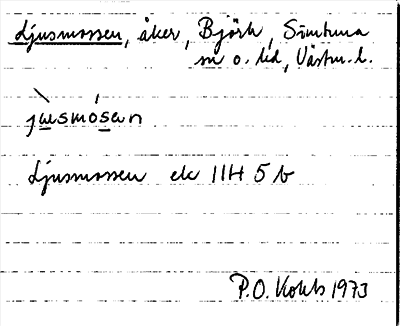 Ljusmossen, åker, Björk, Simtuna
sn o. hd, Västm. l.
jùsmósan
Ljusmossen ek 11H 5 b
P.O. Kohls 1973